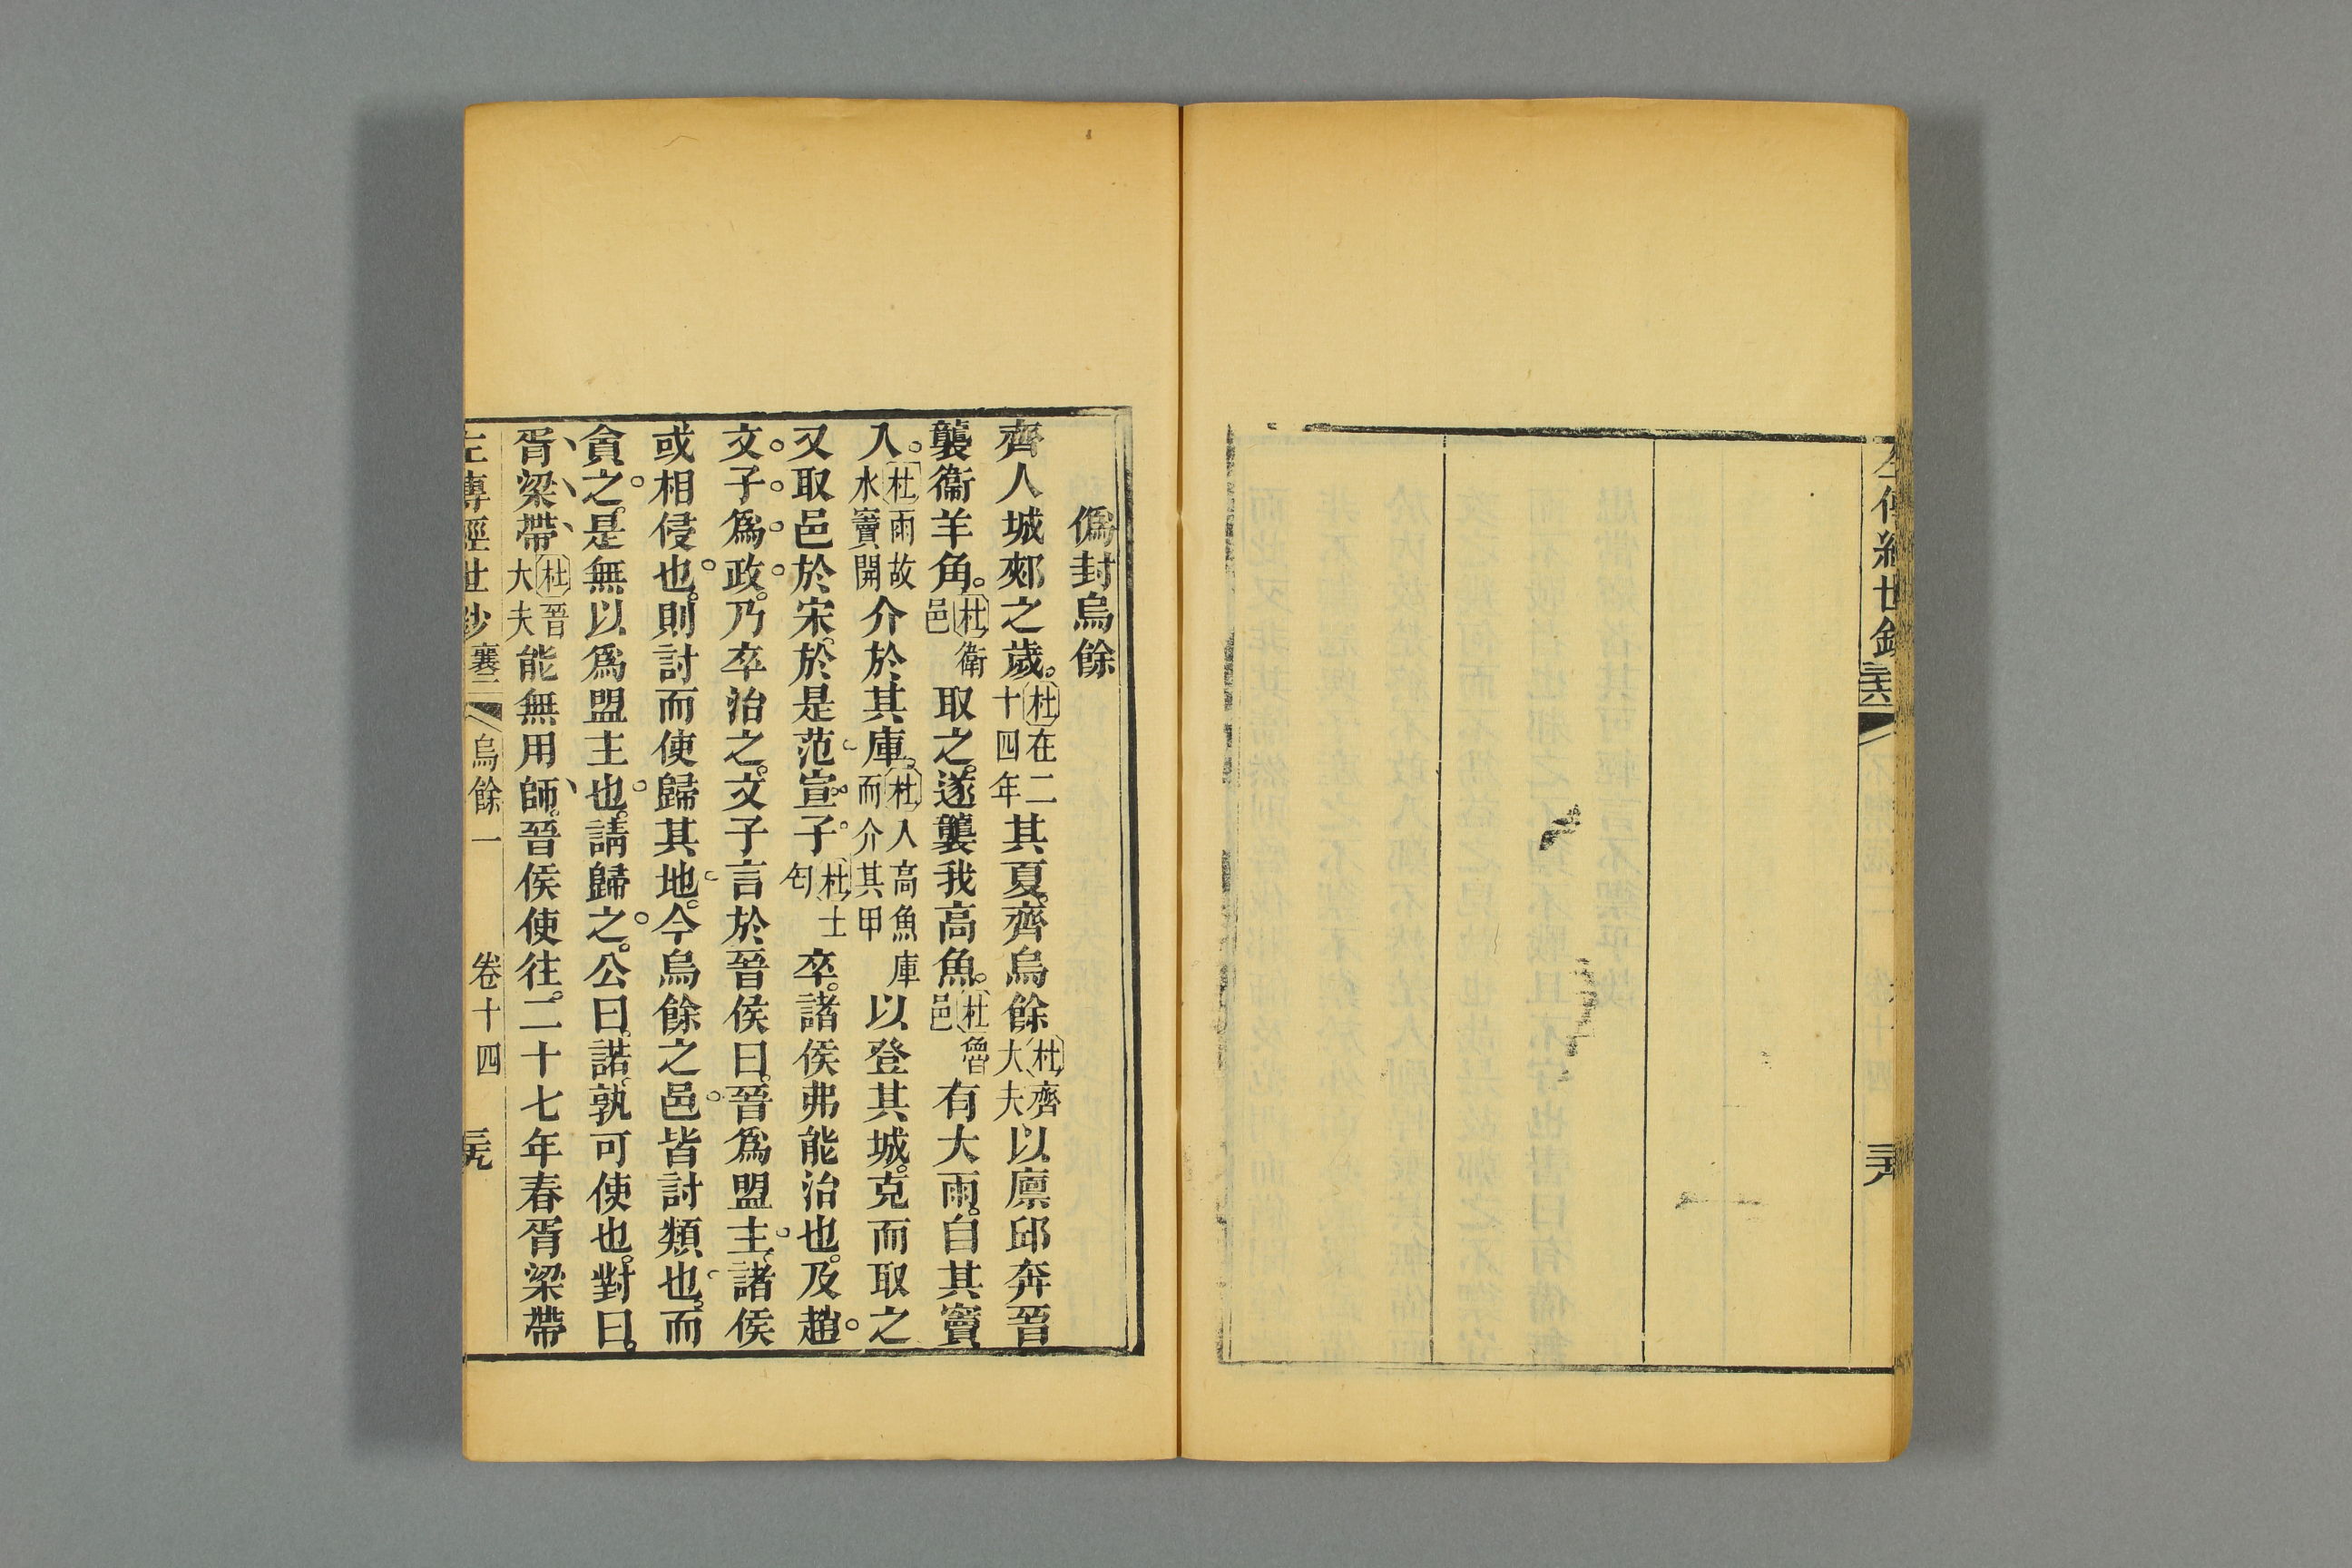 僞封烏餘
齊人城郟之歲。杜在二十四年其夏。齊烏餘杜齊大夫以廪邱奔晉
襲衞羊角。杜衛邑取之。遂襲我高魚。杜魯邑有大雨。自其竇
入。杜雨故水竇開介於其庫。杜入高魚庫而介其甲以登其城。克而取之
又取邑於宋。於是范宣子杜士匄卒。諸侯弗能治也。及趙
文子爲政。乃卒治之。文子言於晉侯曰。晉爲盟主。諸侯
或相侵也。則討而使歸其地。今烏餘之邑。皆討類也。而
貪之。是無以爲盟主也。請歸之。公曰。諾。孰可使也。對曰。
胥梁帶杜晉大夫能無用師。晉侯使往。二十七年春胥梁帶
左傳經世鈔 襄三 烏餘一 卷十四